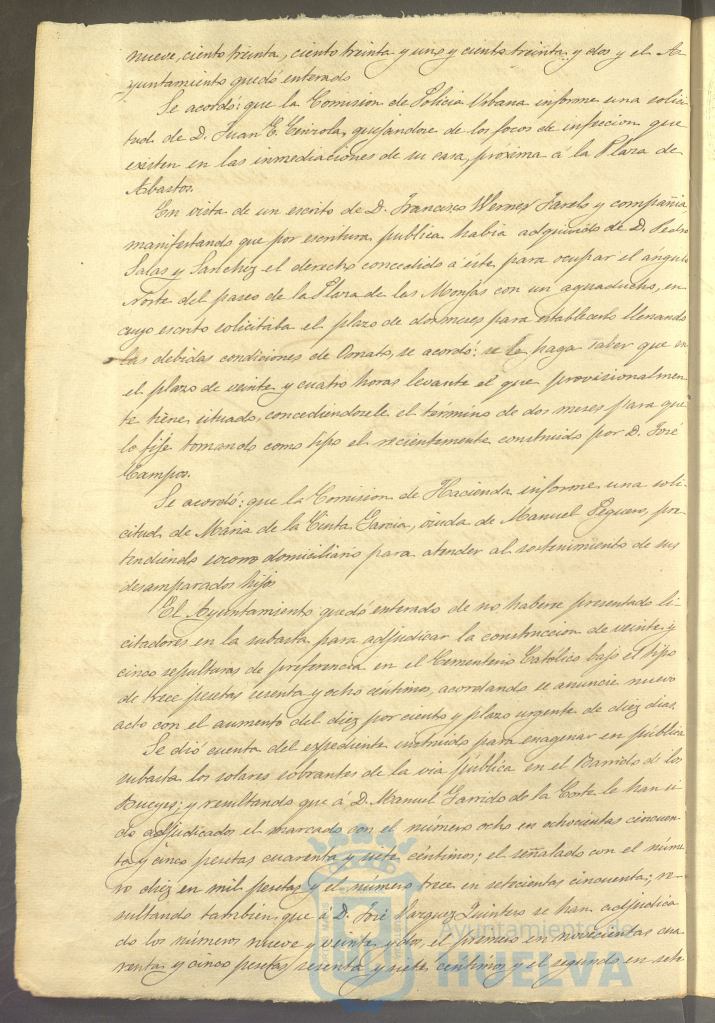 nueve, ciento treinta, ciento treinta y uno y ciento treinta y dos y el A-
yuntamiento quedó enterado
Se acordó: que la Comision de Policia Urbana informe una solici-
tud de D. Juan E. quejandose de los focos de infeccion que
existen en las inmediaciones de su casa, próxima á la Plaza de
Abastos.
En vista de un escrito de D. Francisco Werner y compañia,
manifestando que por escritura publica habia adquirido de D. Pedro
Salas y Sanchez el derecho concedido á este para ocupar el ángulo
Norte del paseo de la Plaza de las Monjas con un aguaducho, en
cuyo escrito solicitaba el plazo de dos meses para establecerlo llenando
las debidas condiciones de Ornato, se acordó: se le haga saber que en
el plazo de veinte y cuatro horas levante el que provisionalmen-
te tiene situado, concediendosele el término de dos meses para que
lo fije tomando como tipo el recientemente construido por D. José
Campos.
Se acordó: que la Comision de Hacienda informe una soli-
citud de Maria de la Cinta Garcia, viuda de Manuel Peguero, pre-
tendiendo socorro domiciliario para atender al sostenimiento de sus
desamparados hijos
El Ayuntamiento quedó enterado de no haberse presentado li-
citadores en la subasta para adjudicar la construccion de veinte y
cinco sepulturas de preferencia en el Cementerio Catolico bajo el tipo
de trece pesetas sesenta y ocho céntimos, acordando se anuncie nuevo
acto con el aumento del diez por ciento y plazo urgente de diez dias.
Se dió cuenta del expediente instruido para enagenar en pública
subasta los solares sobrantes de la via publica en el Barrido de los
Bueyes; y resultando que á D. Manuel Garrido de la Corte le han si-
do adjudicados el marcado con el número ocho en ochocientas cincuen-
ta y cinco pesetas cuarenta y siete céntimos; el señalado con el núme-
ro diez en mil pesetas y el número trece en setecientas cincuenta; re-
sultando tambien que á D. José Vazquez Quintero se han adjudica-
do los números nueve y veinte y dos, el primero en novecientas cua-
renta y cinco pesetas sesenta y siete céntimos y el segundo en sete
Ayuntamiento de
HUELVA